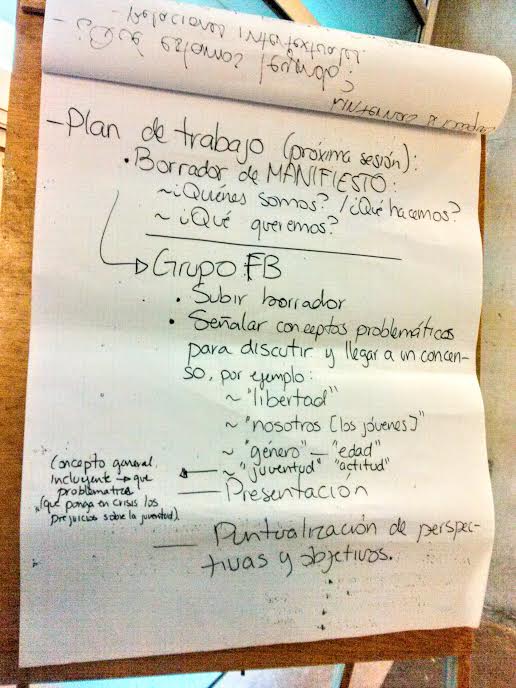 - Relaciones intertextuales.
¿Qué estamos leyendo?
- Plan de trabajo (próxima sesión):
• Borrador de MANIFIESTO:
~ ¿Quiénes somos? / ¿Qué hacemos?
~ ¿Qué queremos?
Grupo FB
• Subir borrador
• Señalar conceptos problemáticos
para discutir y llegar a un concen-
so, por ejemplo:
~ "libertad"
~ "nosotros [los jóvenes]"
~ "género" — "edad"
~ "juventud" "actitud"
Concepto general,
incluyente → que
problematice
(que ponga en crisis los
prejuicios sobre la juventud).
— Presentación
— Puntualización de perspec-
tivas y objetivos.